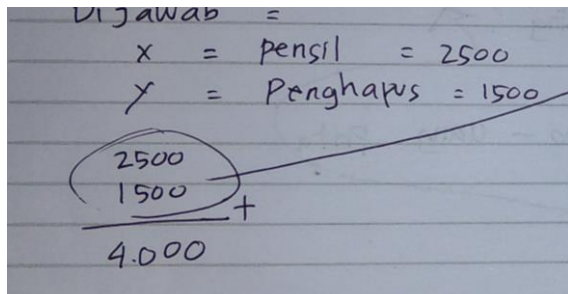 Dijawab =
x = pensil = 2500
y = Penghapus = 1500
2500
1500
+
4.000